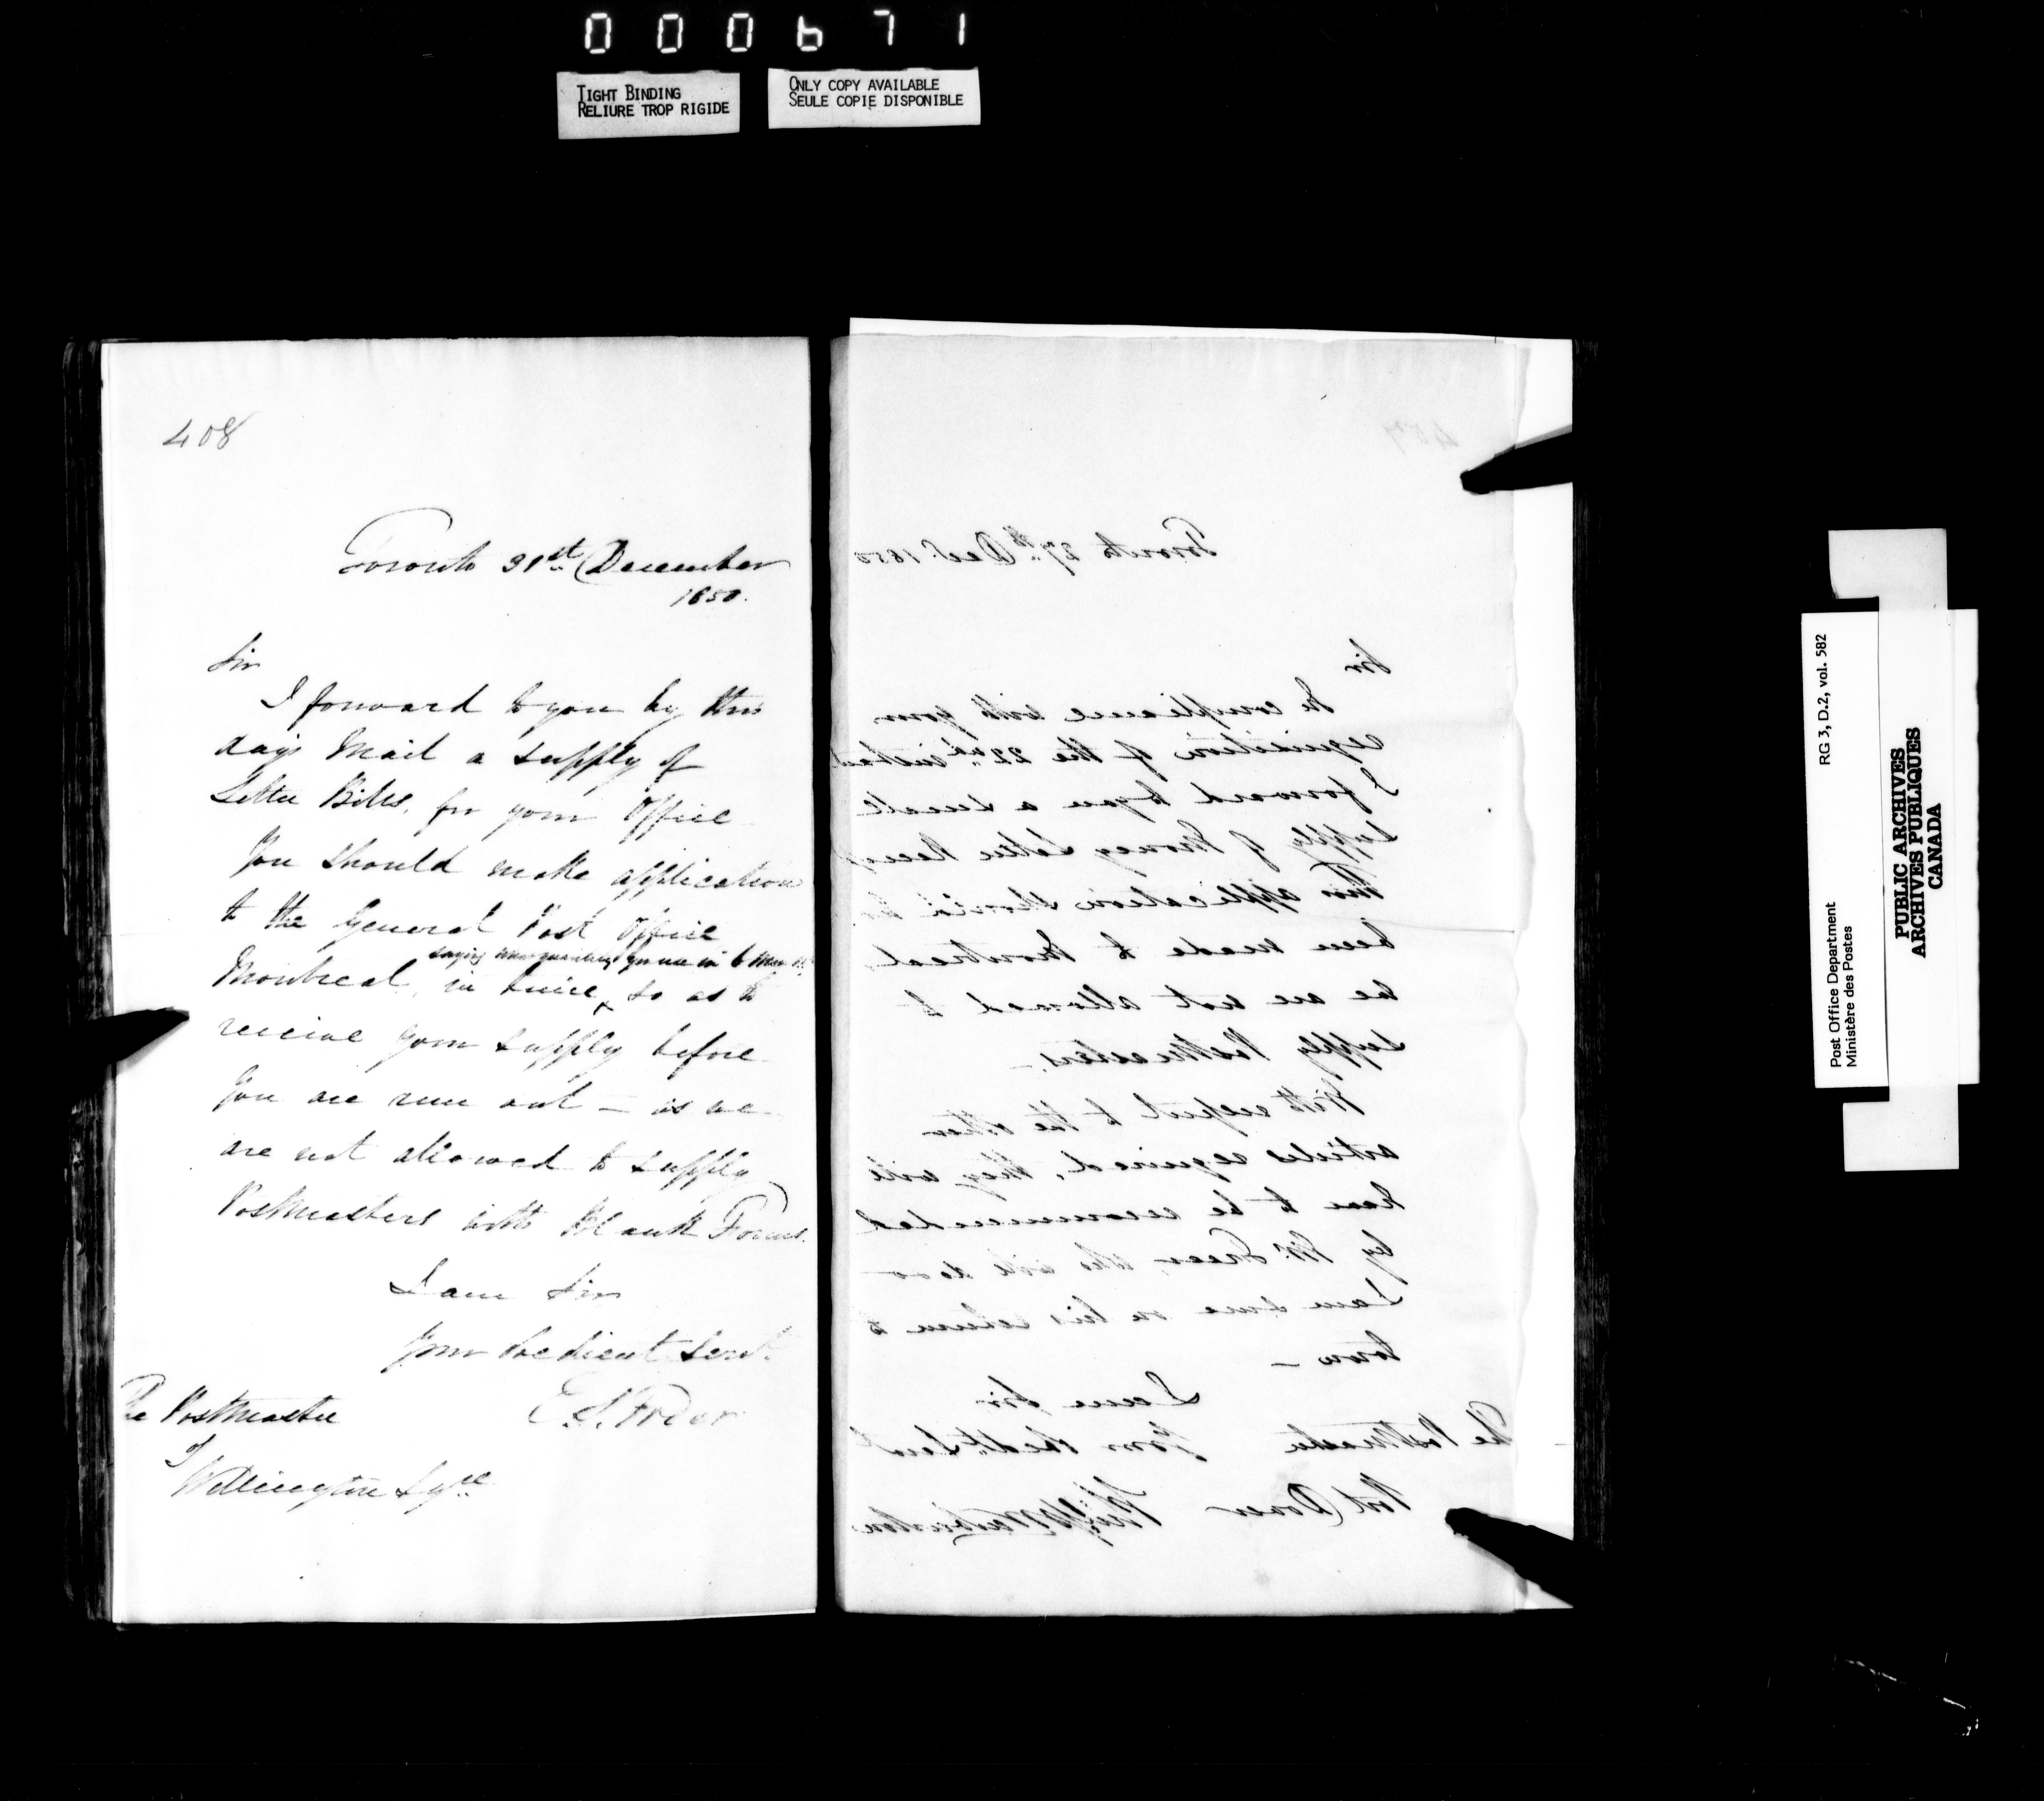 000671
TIGHT BINDING
RELIURE TROP RIGIDE
ONLY COPY AVAILABLE
SEULE COPIE DISPONIBLE
408
Toronto 31st December
1850.
Sir
I forward to you by this
days Mail a supply of
Letter Bills, for your Office
You should make application
to the General Post Office
saying what quantity you use in 6 Mon
Montreal, in time, so as to
receive your supply before
you are run out – as we
are not allowed to supply
Postmasters with Blank Forms.
I am Sir
Your Obedient Servt.
E. S. Freer
The Postmaster
of
Wellington Sqre
407
Toronto 27th Decr. 1850
Sir
In compliance with your
requisition of the 22nd. instant
I forward to you a small
supply of Money Letter
This application should
been made to Montreal,
we are not allowed to
supply Postmasters. –
With respect to the other
articles required, they will
have to be recommended
by Mr. Freer, who will do so
I am sure on his return to
town –
I am Sir
Your Obedt. Servt
The Postmaster
Port Dover
Post Office Department
Ministère des Postes
RG 3, D.2, vol. 582
PUBLIC ARCHIVES
ARCHIVES PUBLIQUES
CANADA